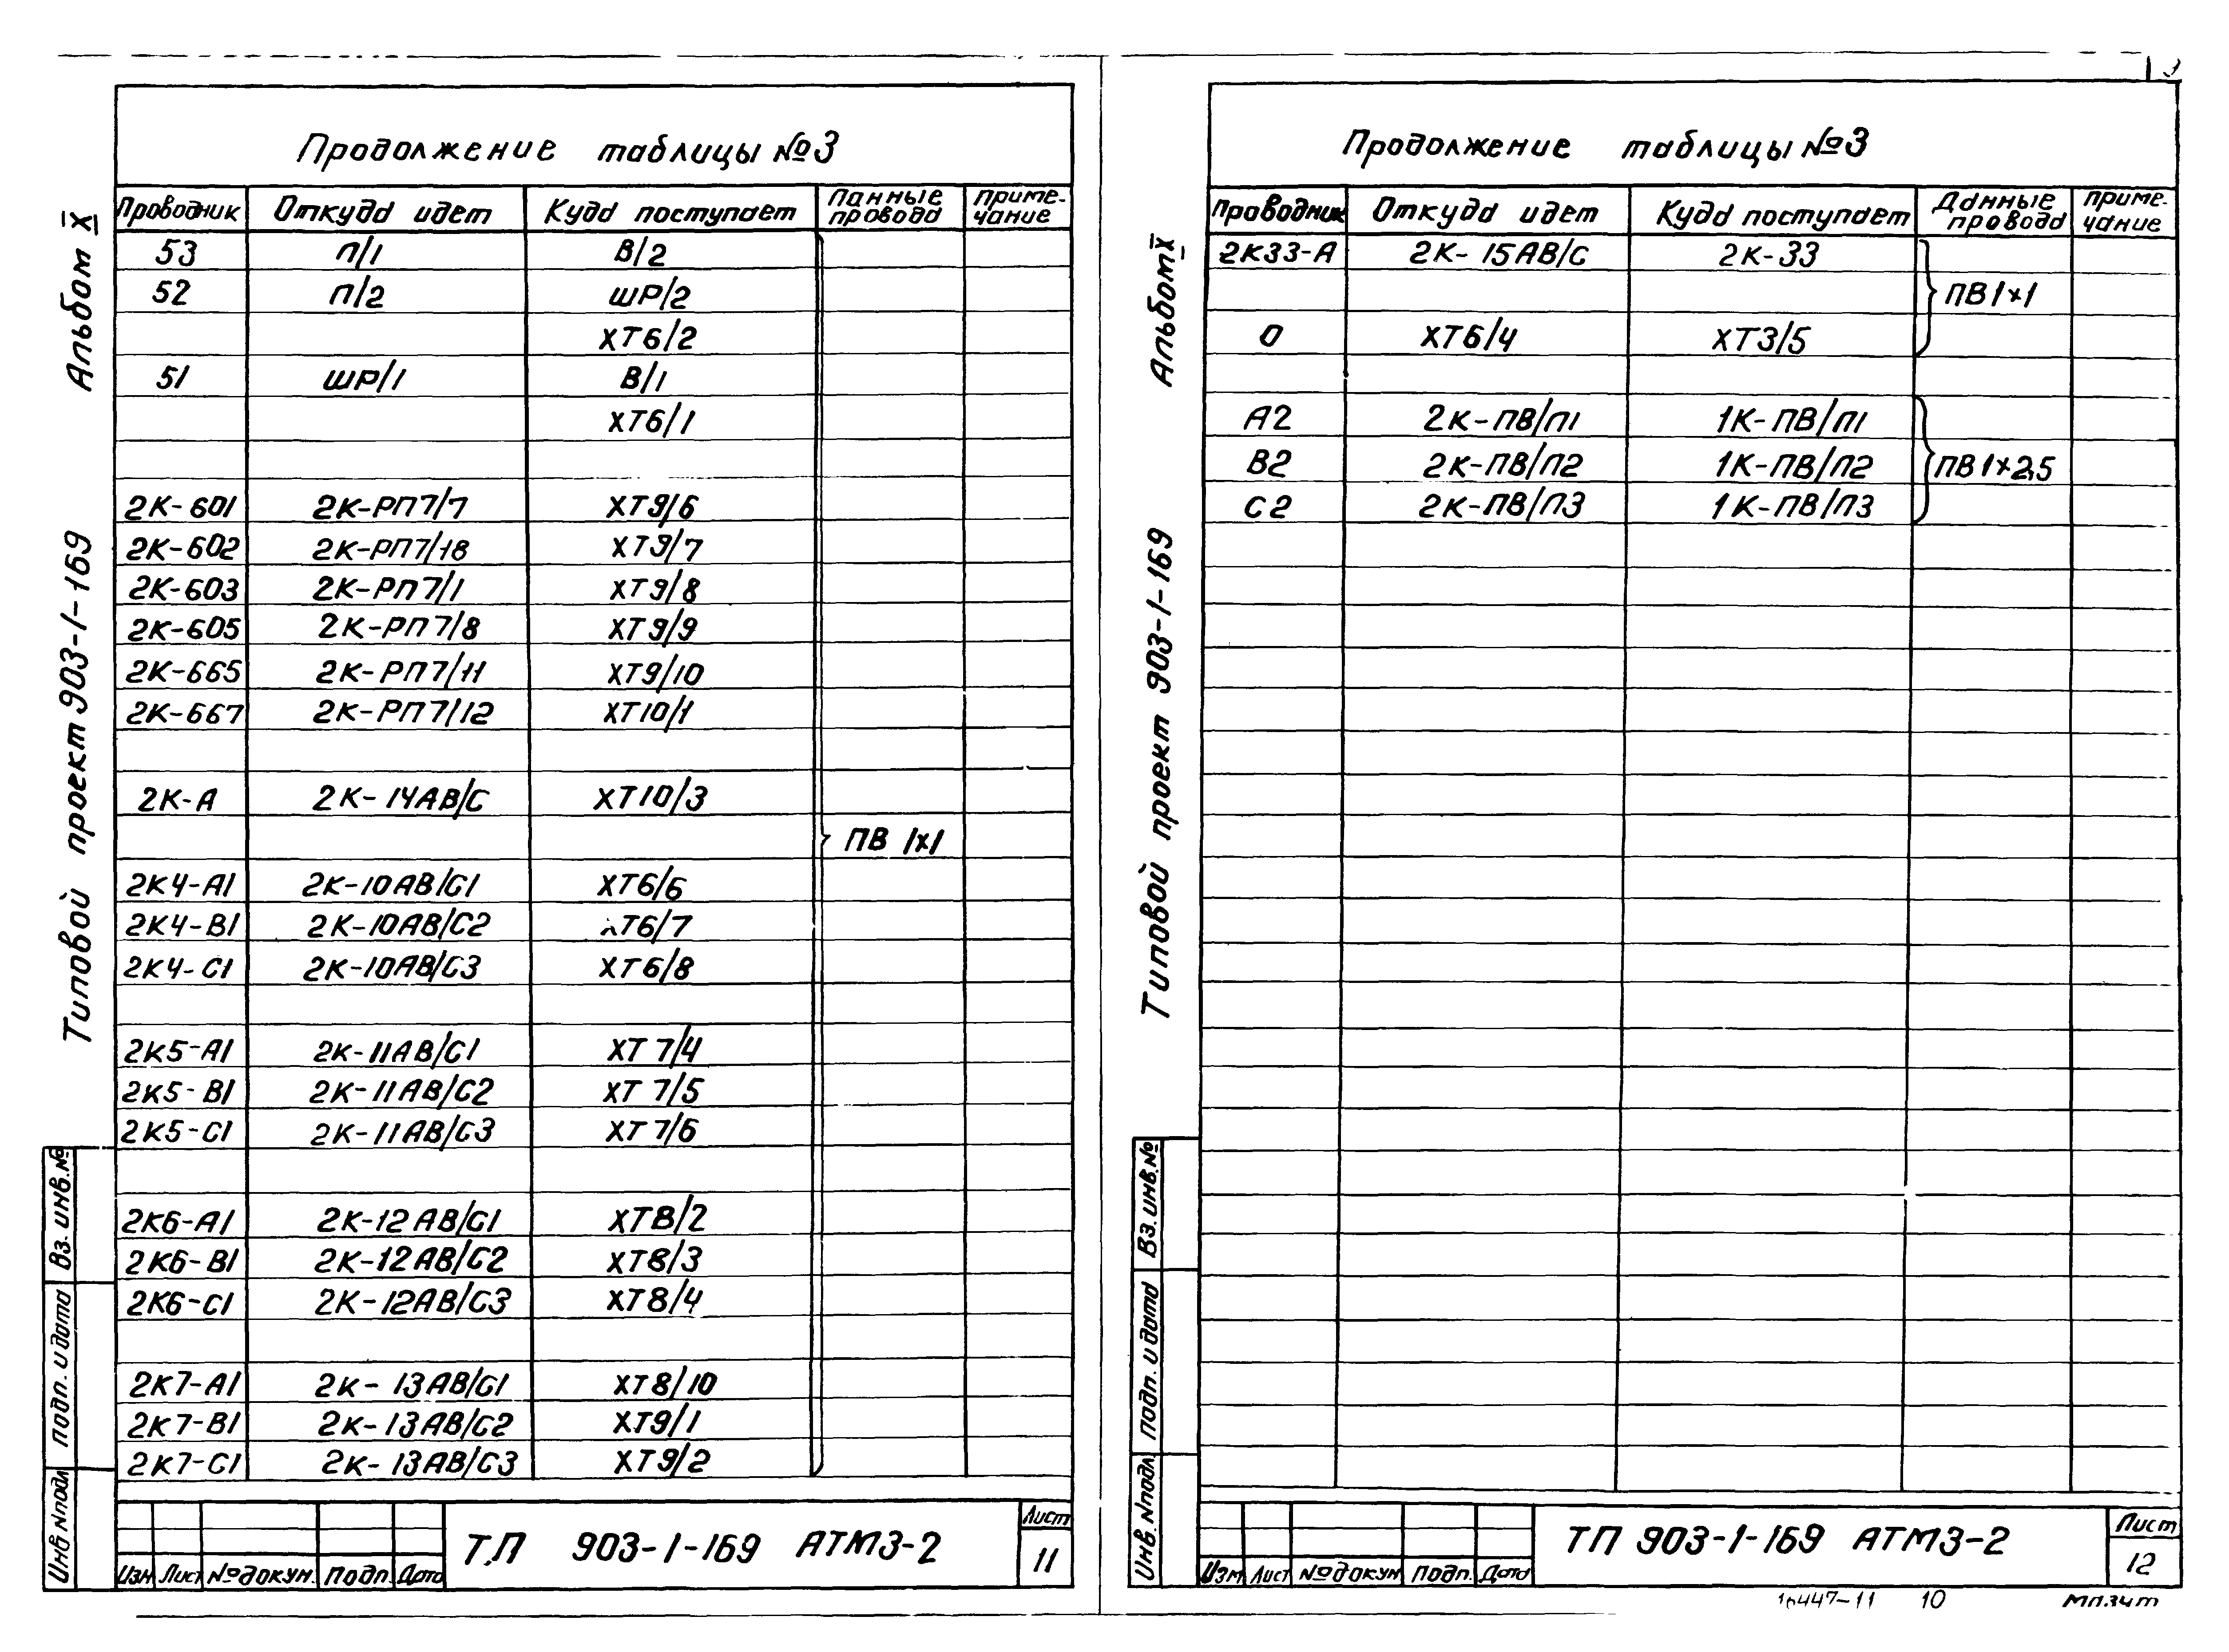 Продолжение таблицы №3
Проводник Откуда идет Куда поступает Данные провода Приме-чание
53 П/1 В/2
52 П/2 ШР/2
ХТ6/2
51 ШР/1 В/1
ХТ6/1
2К-601 2К-РП7/7 ХТ9/6
2К-602 2К-РП7/18 ХТ9/7
2К-603 2К-РП7/1 ХТ9/8
2К-605 2К-РП7/8 ХТ9/9
2К-665 2К-РП7/11 ХТ9/10
2К-667 2К-РП7/12 ХТ10/1
2К-А 2К-14АВ/С ХТ10/3
ПВ 1х1
2К4-А1 2К-10АВ/С1 ХТ6/6
2К4-В1 2К-10АВ/С2 ХТ6/7
2К4-С1 2К-10АВ/С3 ХТ6/8
2К5-А1 2К-11АВ/С1 ХТ7/4
2К5-В1 2К-11АВ/С2 ХТ7/5
2К5-С1 2К-11АВ/С3 ХТ7/6
2К6-А1 2К-12АВ/С1 ХТ8/2
2К6-В1 2К-12АВ/С2 ХТ8/3
2К6-С1 2К-12АВ/С3 ХТ8/4
2К7-А1 2К-13АВ/С1 ХТ8/10
2К7-В1 2К-13АВ/С2 ХТ9/1
2К7-С1 2К-13АВ/С3 ХТ9/2
Типовой проект 903-1-169 Альбом X
Инв.№подл Подп. и дата Вз. инв.№
Изм Лист №докум. Подп. Дата
Т.П 903-1-169 АТМ3-2
Лист
11
Продолжение таблицы №3
Проводник Откуда идет Куда поступает Данные провода Приме-чание
2К33-А 2К-15АВ/С 2К-33
ПВ1х1
О ХТ6/4 ХТ3/5
А2 2К-ПВ/Л1 1К-ПВ/Л1
В2 2К-ПВ/Л2 1К-ПВ/Л2 ПВ1х2,5
С2 2К-ПВ/Л3 1К-ПВ/Л3
Типовой проект 903-1-169 Альбом X
Инв.№подл Подп. и дата Вз. инв.№
Изм Лист №докум Подп. Дата
ТП 903-1-169 АТМ3-2
Лист
12
16447-11 10